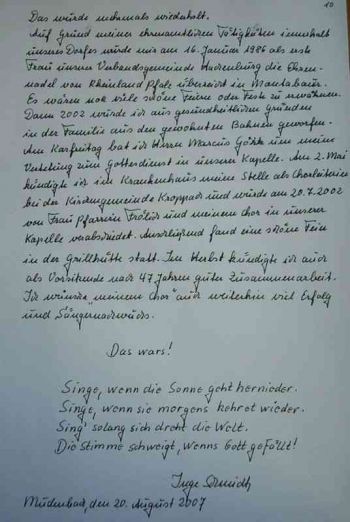 10
Das wurde mehrmals wiederholt.
Auf Grund meiner ehrenamtlichen Tätigkeiten innerhalb
unseres Dorfes wurde mir am 16. Januar 1986 als erste
Frau unserer Verbandsgemeinde Hachenburg die Ehren-
nadel von Rheinland Pfalz überreicht in Montabaur.
Es wären noch viele schöne Feiern oder Feste zu erwähnen.
Dann 2002 wurde ich aus gesundheitlichen Gründen
in der Familie aus den gewohnten Bahnen geworfen.
Am Karfreitag bat ich Herrn Marcus um meine
Vertretung zum Gottesdienst in unserer Kapelle. Am 2. Mai
kündigte ich im Krankenhaus meine Stelle als Chorleiterin
bei der Kirchengemeinde Kroppach und wurde am 20.7.2002
von Frau Pfarrerin und meinem Chor in unserer
Kapelle verabschiedet. Anschließend fand eine schöne Feier
in der Grillhütte statt. Im Herbst kündigte ich auch
als Vorsitzende nach 47 Jahren guter Zusammenarbeit.
Ich wünsche meinem Chor auch weiterhin viel Erfolg
und Sängernachwuchs.
Das wars!
Singe, wenn die Sonne geht hernieder.
Singe, wenn sie morgens kehret wieder.
Sing' solang sich dreht die Welt.
Die Stimme schweigt, wenns Gott gefällt!
Inge Schmidt
Müdenbach, den 20. August 2007